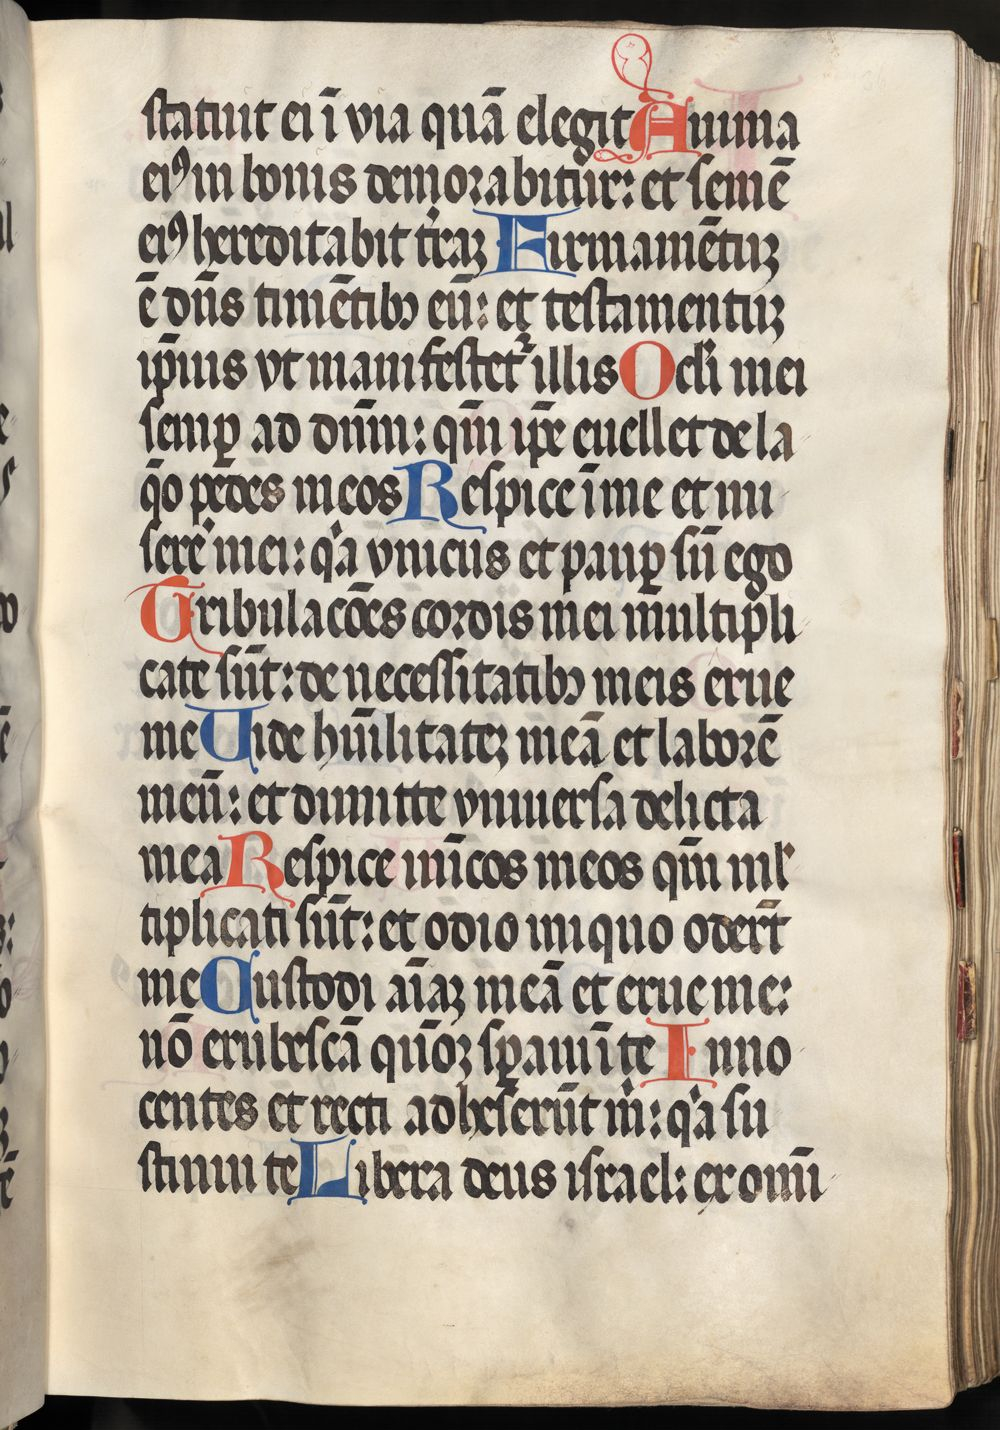 statuit ei ī via quā elegit Anima
eiꝰ in bonis demorabitur: et semē
eiꝰ hereditabit t̄raꝫ Firmamētuꝫ
ē dn̄s timētibꝫ eū: et testamentuꝫ
ip̄ius vt manifestet᷑ illis Ocl̓i mei
semꝑ ad dn̄m: qm̄ ip̄e euellet de la
q̄o pedes meos Respice ī me et mi
sere᷑ mei: qͥa vnicus et pauꝑ sū ego
Tribulacōes cordis mei multipli
cate sūt: de necessitatibꝫ meis erue
me Uide hūilitateꝫ meā et laborē
meū: et dimitte vniuersa delicta
mea Respice inīcos meos qm̄ ml̓
tiplicati sūt: et odio iniquo odert̄
me Custodi aīaꝫ meā et erue me:
nō erubescā qūoꝫ sꝑaui ī te Inno
centes et recti adheserūt mͥ: qͥa su
stinui te Libera deus israel: ex omī